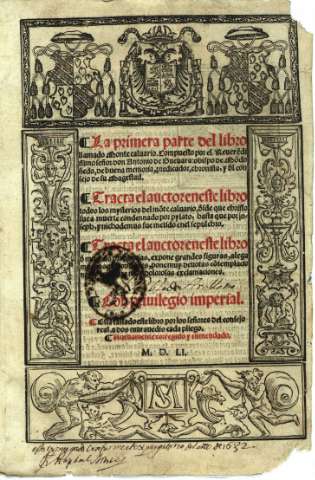 La primera parte del libro
llamado Monte caluario. Compuesto por el Reuerēdis
simo señor don Antonio de Gueuara obispo de Mōdo
ñedo, de buena memoria, predicador, chronista, y del con
sejo de su Magestad.
Tracta el auctor en este libro
todos los mysterios del mōte caluario, desde que christo
fue a muerte condennado por pylato, hasta que por jo
seph, y nichodemus fue metido en el sepulchro.
Tracta el auctor en este libro
expone grandes figuras, alega
pone muy deuotas cōtemplaciō
exclamaciones.
Con priuilegio imperial.
Esta tassado este libro por los señores del consejo
real a dos marauedis cada pliego.
Nueuamente corregido y emendado.
M. D. LI.
de 1632